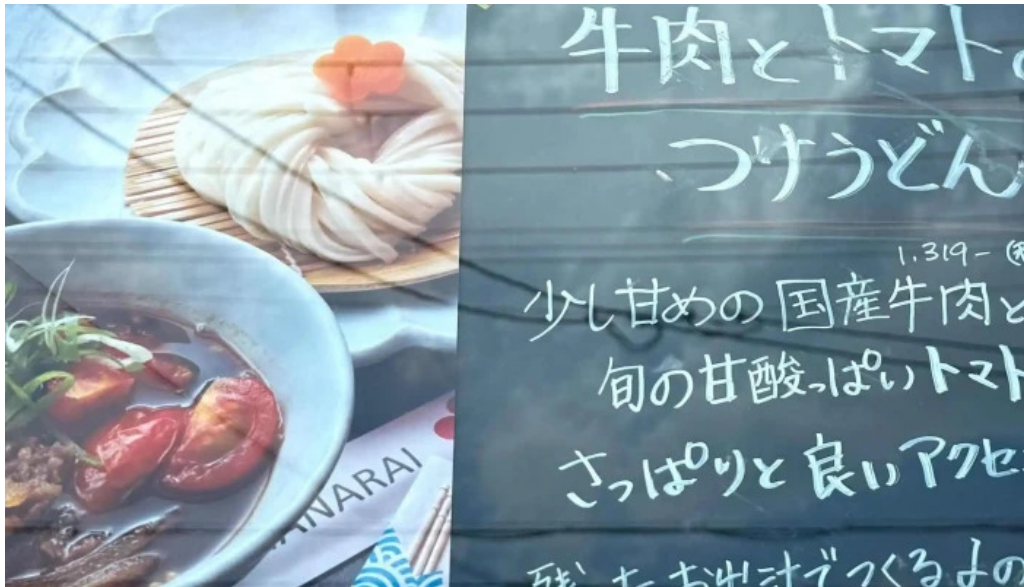 牛肉とトマト
つけうどん
1.319-
少し甘めの国産牛肉と
旬の甘酸っぱいトマト
さっぱりと良いアクセ
残ったお出汁でつくる
ANARAI